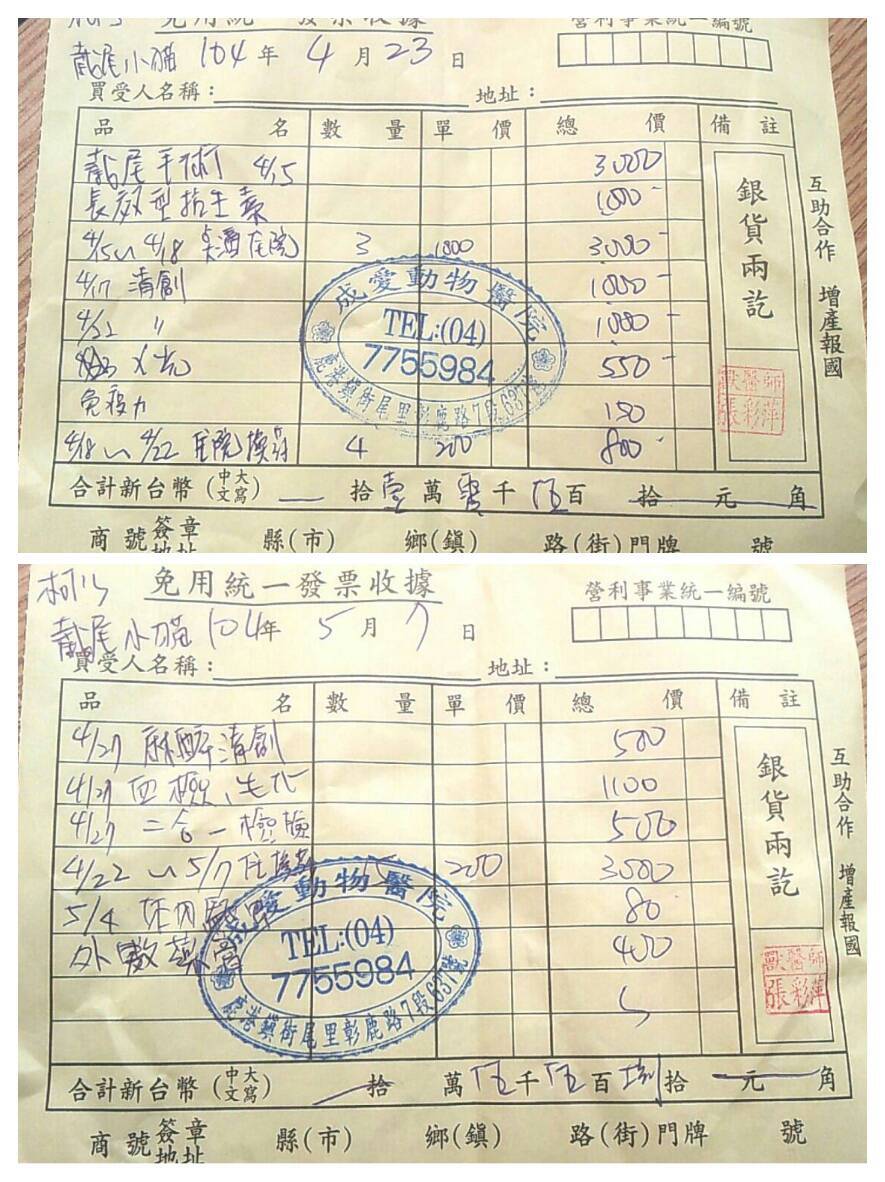 免用統一發票收據
營利事業統一編號
截尾小貓 104年 4月 23日
買受人名稱： 地址：
品名 數量 單價 總價 備註
截尾手術 4/15 3000
長效型抗生素 1000
4/15~4/18 點滴住院 3 1000 3000
4/17 清創 1000
4/22 〃 1000
X光 550
免疫力 150
4/18~4/22 住院換藥 4 200 800
銀貨兩訖
獸醫師
張彩萍
互助合作 增產報國
成愛動物醫院
TEL:(04)
7755984
鹿港鎮街尾里彰鹿路7段637號
合計新台幣(中文大寫) 拾壹萬零千伍百拾元角
商號簽章地址 縣(市) 鄉(鎮) 路(街)門牌 號
免用統一發票收據
營利事業統一編號
截尾小貓 104年 5月 7日
買受人名稱： 地址：
品名 數量 單價 總價 備註
4/27 麻醉清創 500
4/27 血檢、生化 1100
4/27 二合一檢驗 500
4/22~5/7 住換藥 15 200 3000
5/4 80
外敷藥膏 400
銀貨兩訖
獸醫師
張彩萍
互助合作 增產報國
成愛動物醫院
TEL:(04)
7755984
鹿港鎮街尾里彰鹿路7段637號
合計新台幣(中文大寫) 拾萬伍千伍百捌拾元角
商號簽章地址 縣(市) 鄉(鎮) 路(街)門牌 號